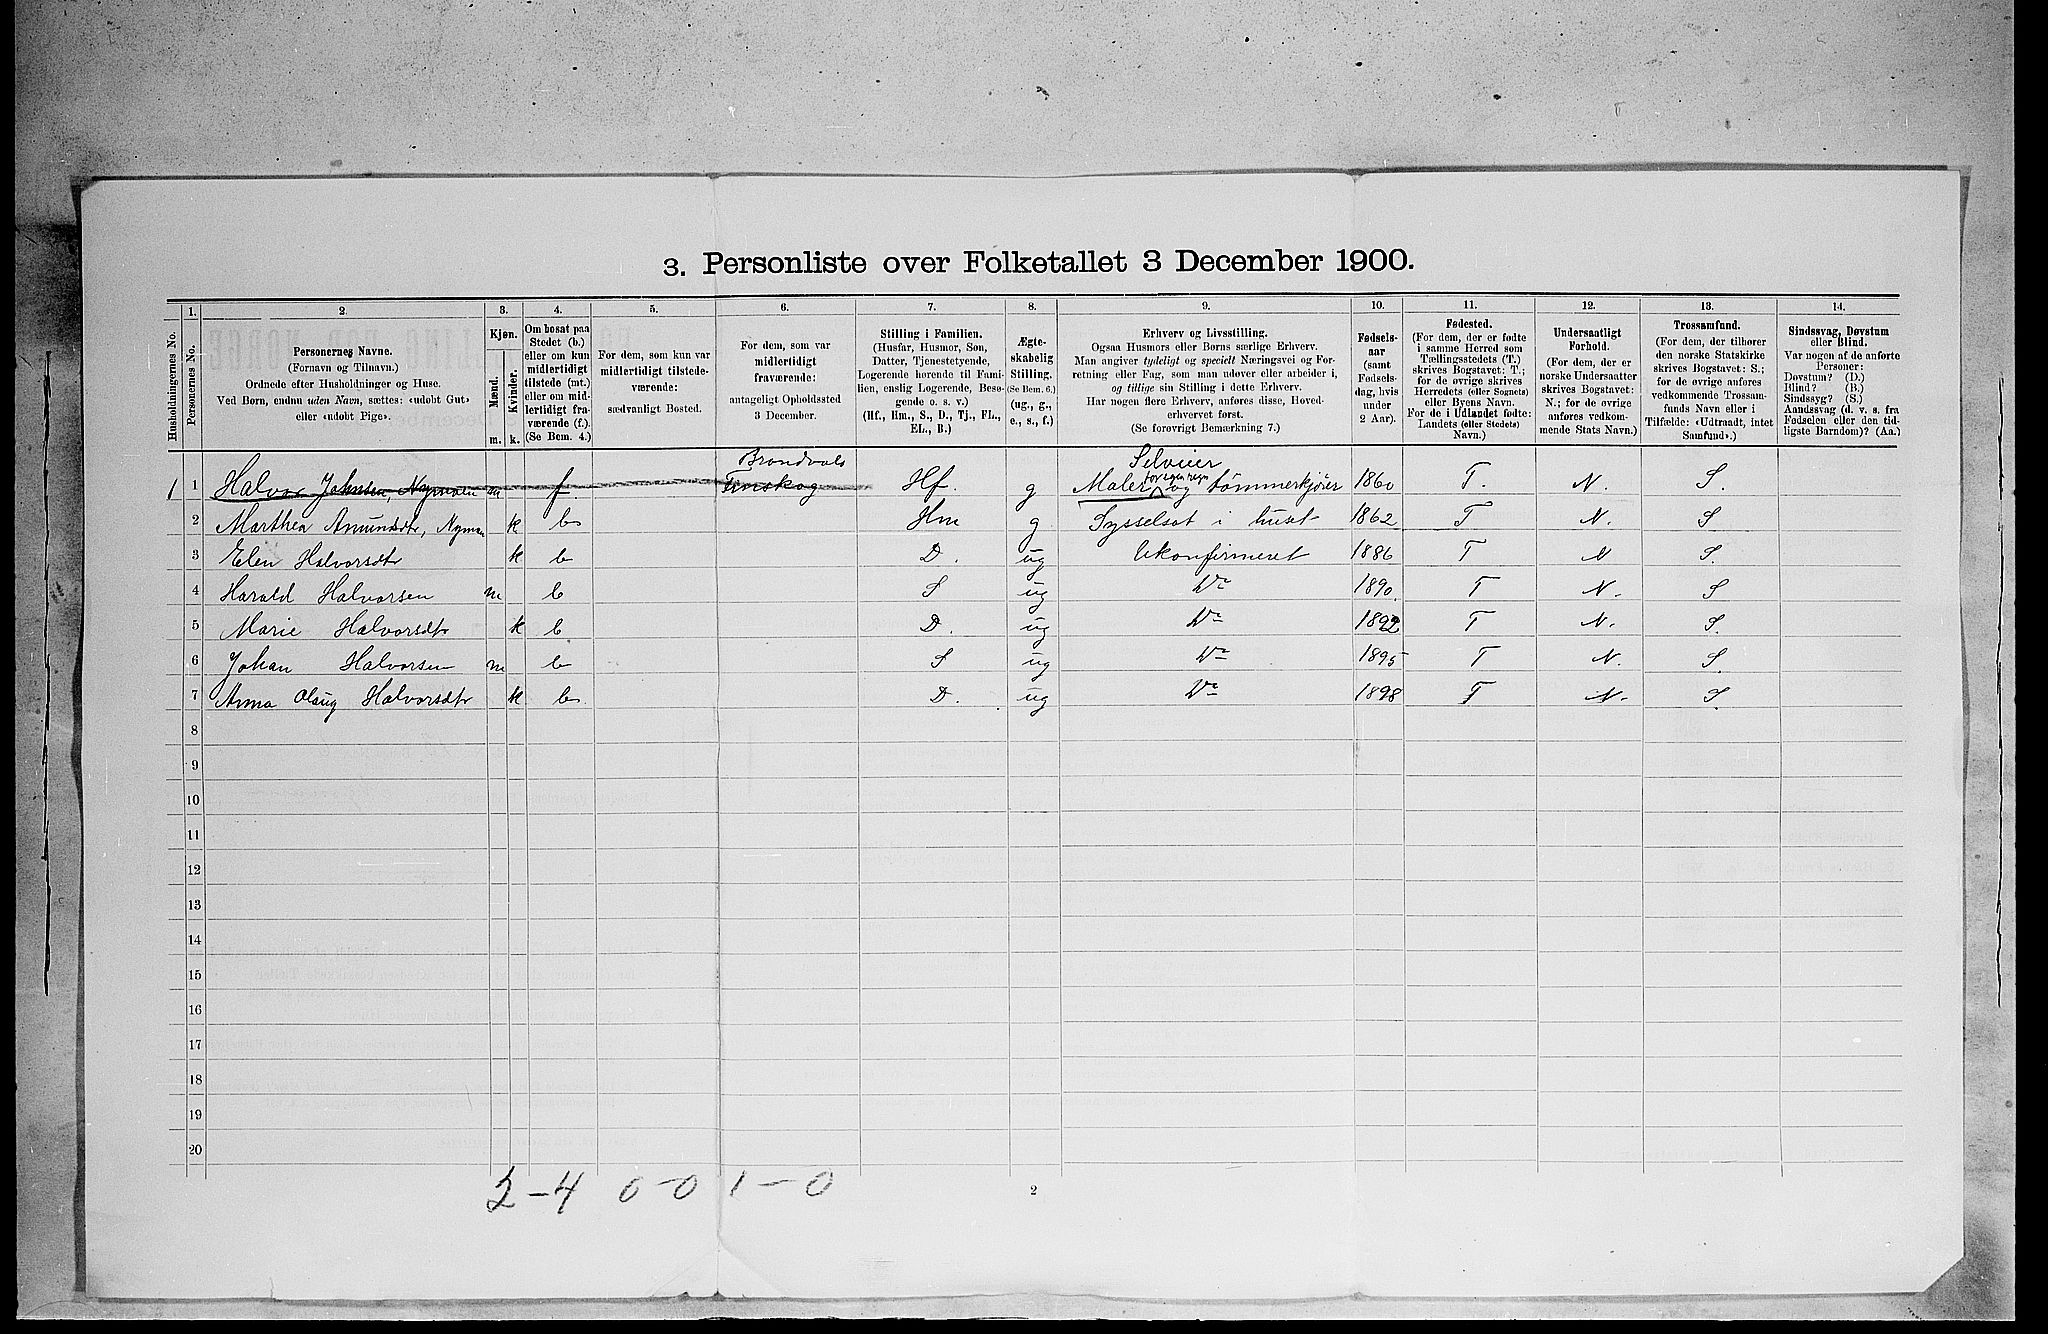 3. Personliste over Folketallet 3 December 1900.
1. 2. 3. 4. 5. 6. 7. 8. 9. 10. 11. 12. 13. 14.
Husholdningernes No.
Personernes No.
Personernes Navne.
(Fornavn og Tilnavn.)
Ordnede efter Husholdninger og Huse.
Ved Børn, endnu uden Navn, sættes: «udobt Gut»
eller «udobt Pige».
Kjøn.
Mænd.
Kvinder.
m. k.
Om bosat paa
Stedet (b.)
eller om kun
midlertidigt
tilstede (mt.)
eller om mid-
lertidigt fra-
værende (f.)
(Se Bem. 4.)
For dem, som kun var
midlertidigt tilstede-
værende:
sædvanligt Bosted.
For dem, som var
midlertidigt
fraværende:
antageligt Opholdssted
3 December.
Stilling i Familien.
(Husfar, Husmor, Søn,
Datter, Tjenestetyende,
Logerende hørende til Fami-
lien, enslig Logerende, Besø-
gende o. s. v.)
(Hf., Hm., S., D., Tj., FL.,
EL., B.)
Ægte-
skabelig
Stilling.
(Se Bem. 6.)
(ug., g.,
e., s., f.)
Erhverv og Livsstilling.
Ogsaa Husmors eller Børns særlige Erhverv.
Man angiver tydeligt og specielt Næringsvei og For-
retning eller Fag, som man udøver eller arbeider i,
og tillige sin Stilling i dette Erhverv.
Har nogen flere Erhverv, anføres disse, Hoved-
erhvervet først.
(Se forøvrigt Bemærkning 7.)
Fødsels-
aar
(samt
Fødsels-
dag, hvis
under
2 Aar).
Fødested.
(For dem, der er fødte
i samme Herred som
Tællingsstedets (T.)
skrives Bogstavet: T.;
for de øvrige skrives
Herredets (eller Sognets)
eller Byens Navn.
For de i Udlandet fødte:
Landets (eller Stedets)
Navn.)
Undersaatligt
Forhold.
(For dem, der er
norske Undersaatter
skrives Bogstavet:
N.; for de øvrige
anføres vedkom-
mende Stats Navn.)
Trossamfund.
(For dem, der tilhører
den norske Statskirke
skrives Bogstavet: S.;
for de øvrige anføres
vedkommende Trossam-
funds Navn eller i
Tilfælde: «Udtraadt, intet
Samfund».)
Sindssvag, Døvstum
eller Blind.
Var nogen af de anførte
Personer:
Døvstum? (D.)
Blind? (B.)
Sindssyg? (S.)
Aandssvag (d. v. s. fra
Fødselen eller den tid-
ligste Barndom)? (Aa.)
Brandvols Selveier
1 1 Halvor Johnsen, Nymoen m f. Finskog Hf. g Maler og tømmerkjører 1860 T. N. S.
2 Marthea Amundsdtr, Nymoen k b Hm g Sysselsat i huset 1862 T N. S
3 Elen Halvorsdtr k b D. ug Ukonfirmeret 1886 T N S.
4 Harald Halvorsen m b S ug Do 1890. T N. S
5 Marie Halvorsdtr k b D. ug Do 1892 T N. S.
6 Johan Halvorsen m b S ug Do 1895 T N. S
7 Anna Olaug Halvorsdtr k b D. ug Do 1898 T N. S.
8
9
10
11
12
13
14
15
16
17
18
19
20
2-4 0-0 1-0
2